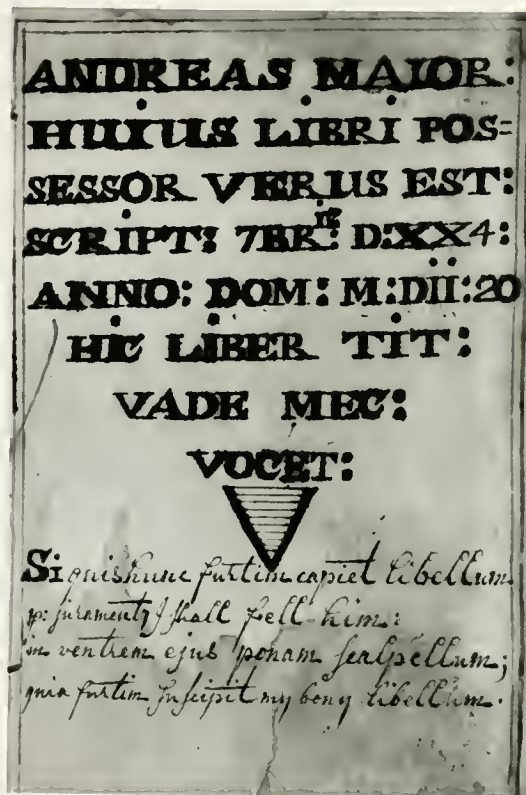 ANDREAS MAIOR:
HUIUS LIBRI POS=
SESSOR VERUS EST:
SCRIPT: 7BRis: D:XX4:
ANNO: DOM: M:DII:20
HIC LIBER TIT:
VADE MEC:
VOCET:
Si quis hunc furtim capiet libellum
p: juramentū I shall fell him:
in ventrem ejus ponam scalpellum;
quia furtim suscipit my bony libellum.